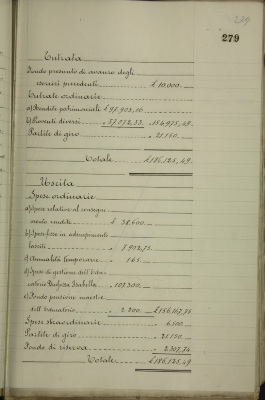 279
279
Entrata
Fondo presunto di avanzo degli
esercizi precedenti £ 10.000.
Entrate ordinarie
a) Rendite patrimoniali £ 97.903,16
b) Proventi diversi " 57.072,33 " 154.975,49
Partite di giro " 21.150.
Totale £ 186.125,49
Uscita
Spese ordinarie
a) Spese relative al consegui-
mento rendite £ 38.600.
b) Spese fisse in adempimento
lasciti " 8.902,75
c) Annualità temporarie " 165.
d) Spese di gestione dell'Edu-
catorio Duchessa Isabella " 107.300.
e) Fondo pensione maestre
dell'Educatorio " 2.200. £ 156.167,75
Spese straordinarie " 6.500.
Partite di giro " 21.150
Fondo di riserva " 2.307,74
Totale £ 186.125,49